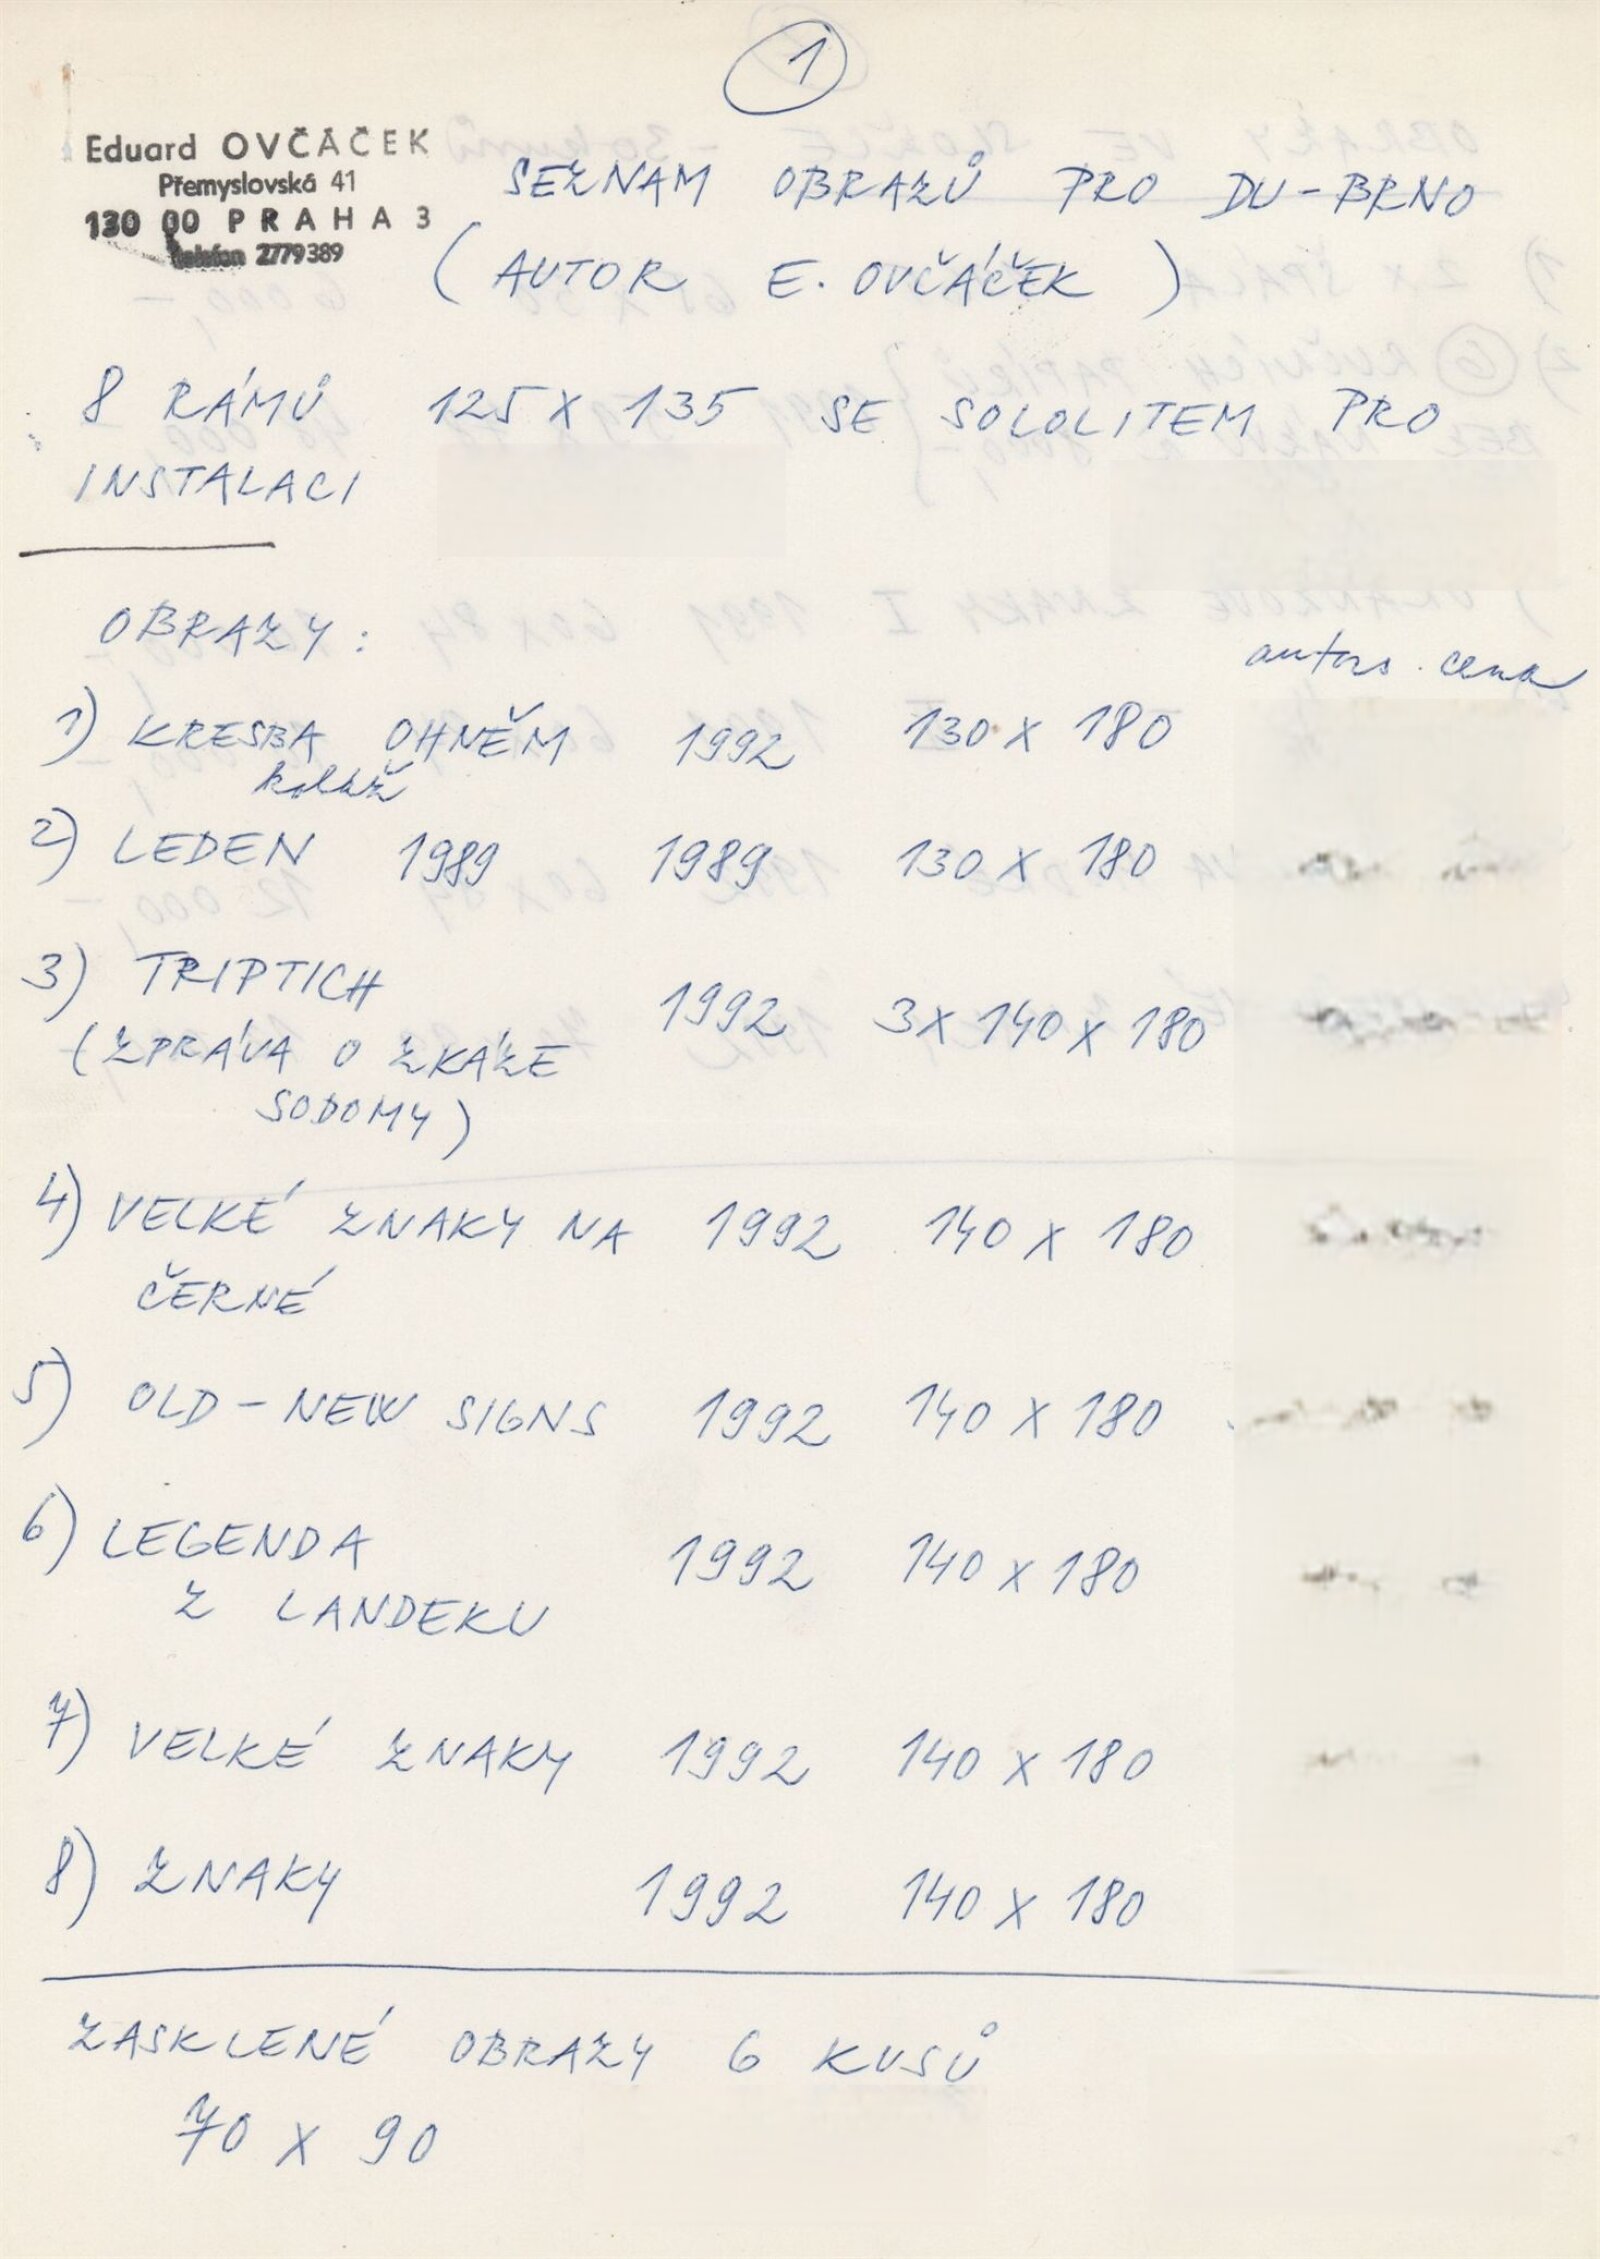 1
Eduard OVČÁČEK
Přemyslovská 41
130 00 PRAHA 3
telefon 2779389
SEZNAM OBRAZŮ PRO DU-BRNO
(AUTOR E. OVČÁČEK)
8 RÁMŮ 125 X 135 SE SOLOLITEM PRO
INSTALACI
OBRAZY:
autors. cena
1) KRESBA OHNĚM 1992 130 X 180
koláž
2) LEDEN 1989 1989 130 X 180
3) TRIPTICH 1992 3X 140 X 180
(ZPRÁVA O ZKÁZE
SODOMY)
4) VELKÉ ZNAKY NA 1992 140 X 180
ČERNÉ
5) OLD-NEW SIGNS 1992 140 X 180
6) LEGENDA 1992 140 X 180
Z LANDEKU
7) VELKÉ ZNAKY 1992 140 X 180
8) ZNAKY 1992 140 X 180
ZASKLENÉ OBRAZY 6 KUSŮ
70 X 90